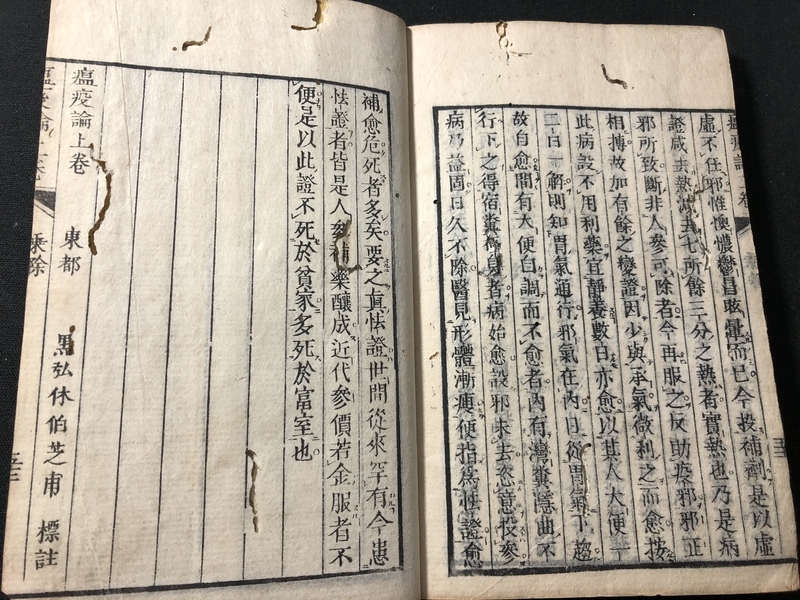 虛不任邪惟懊憹鬱冒眩暈而已今投補劑是以虛
證咸去熱減去七所餘三分之熱者實熱也乃是病
邪所致斷非人參可除者今再服之反助疫邪邪正
相搏故加有餘之變證因少與承氣微利之而愈按
此病設不用利藥宜靜養數日亦愈以其人大便一
二日一解則知胃氣通行邪氣在內日從胃氣下趨
故自愈間有大便自調而不愈者內有灣糞隱曲不
行下之得宿糞極臭者病始愈設邪未去恣意投參
病乃益固日久不除醫見形體漸瘦便指爲怯證愈
補愈危死者多矣要之眞怯證世間從來罕有今患
怯證者皆是人參補藥釀成近代參價若金服者不
便是以此證不死於貧家多死於富室也
瘟疫論上卷
東都
弘休伯芝甫
標註
乘除